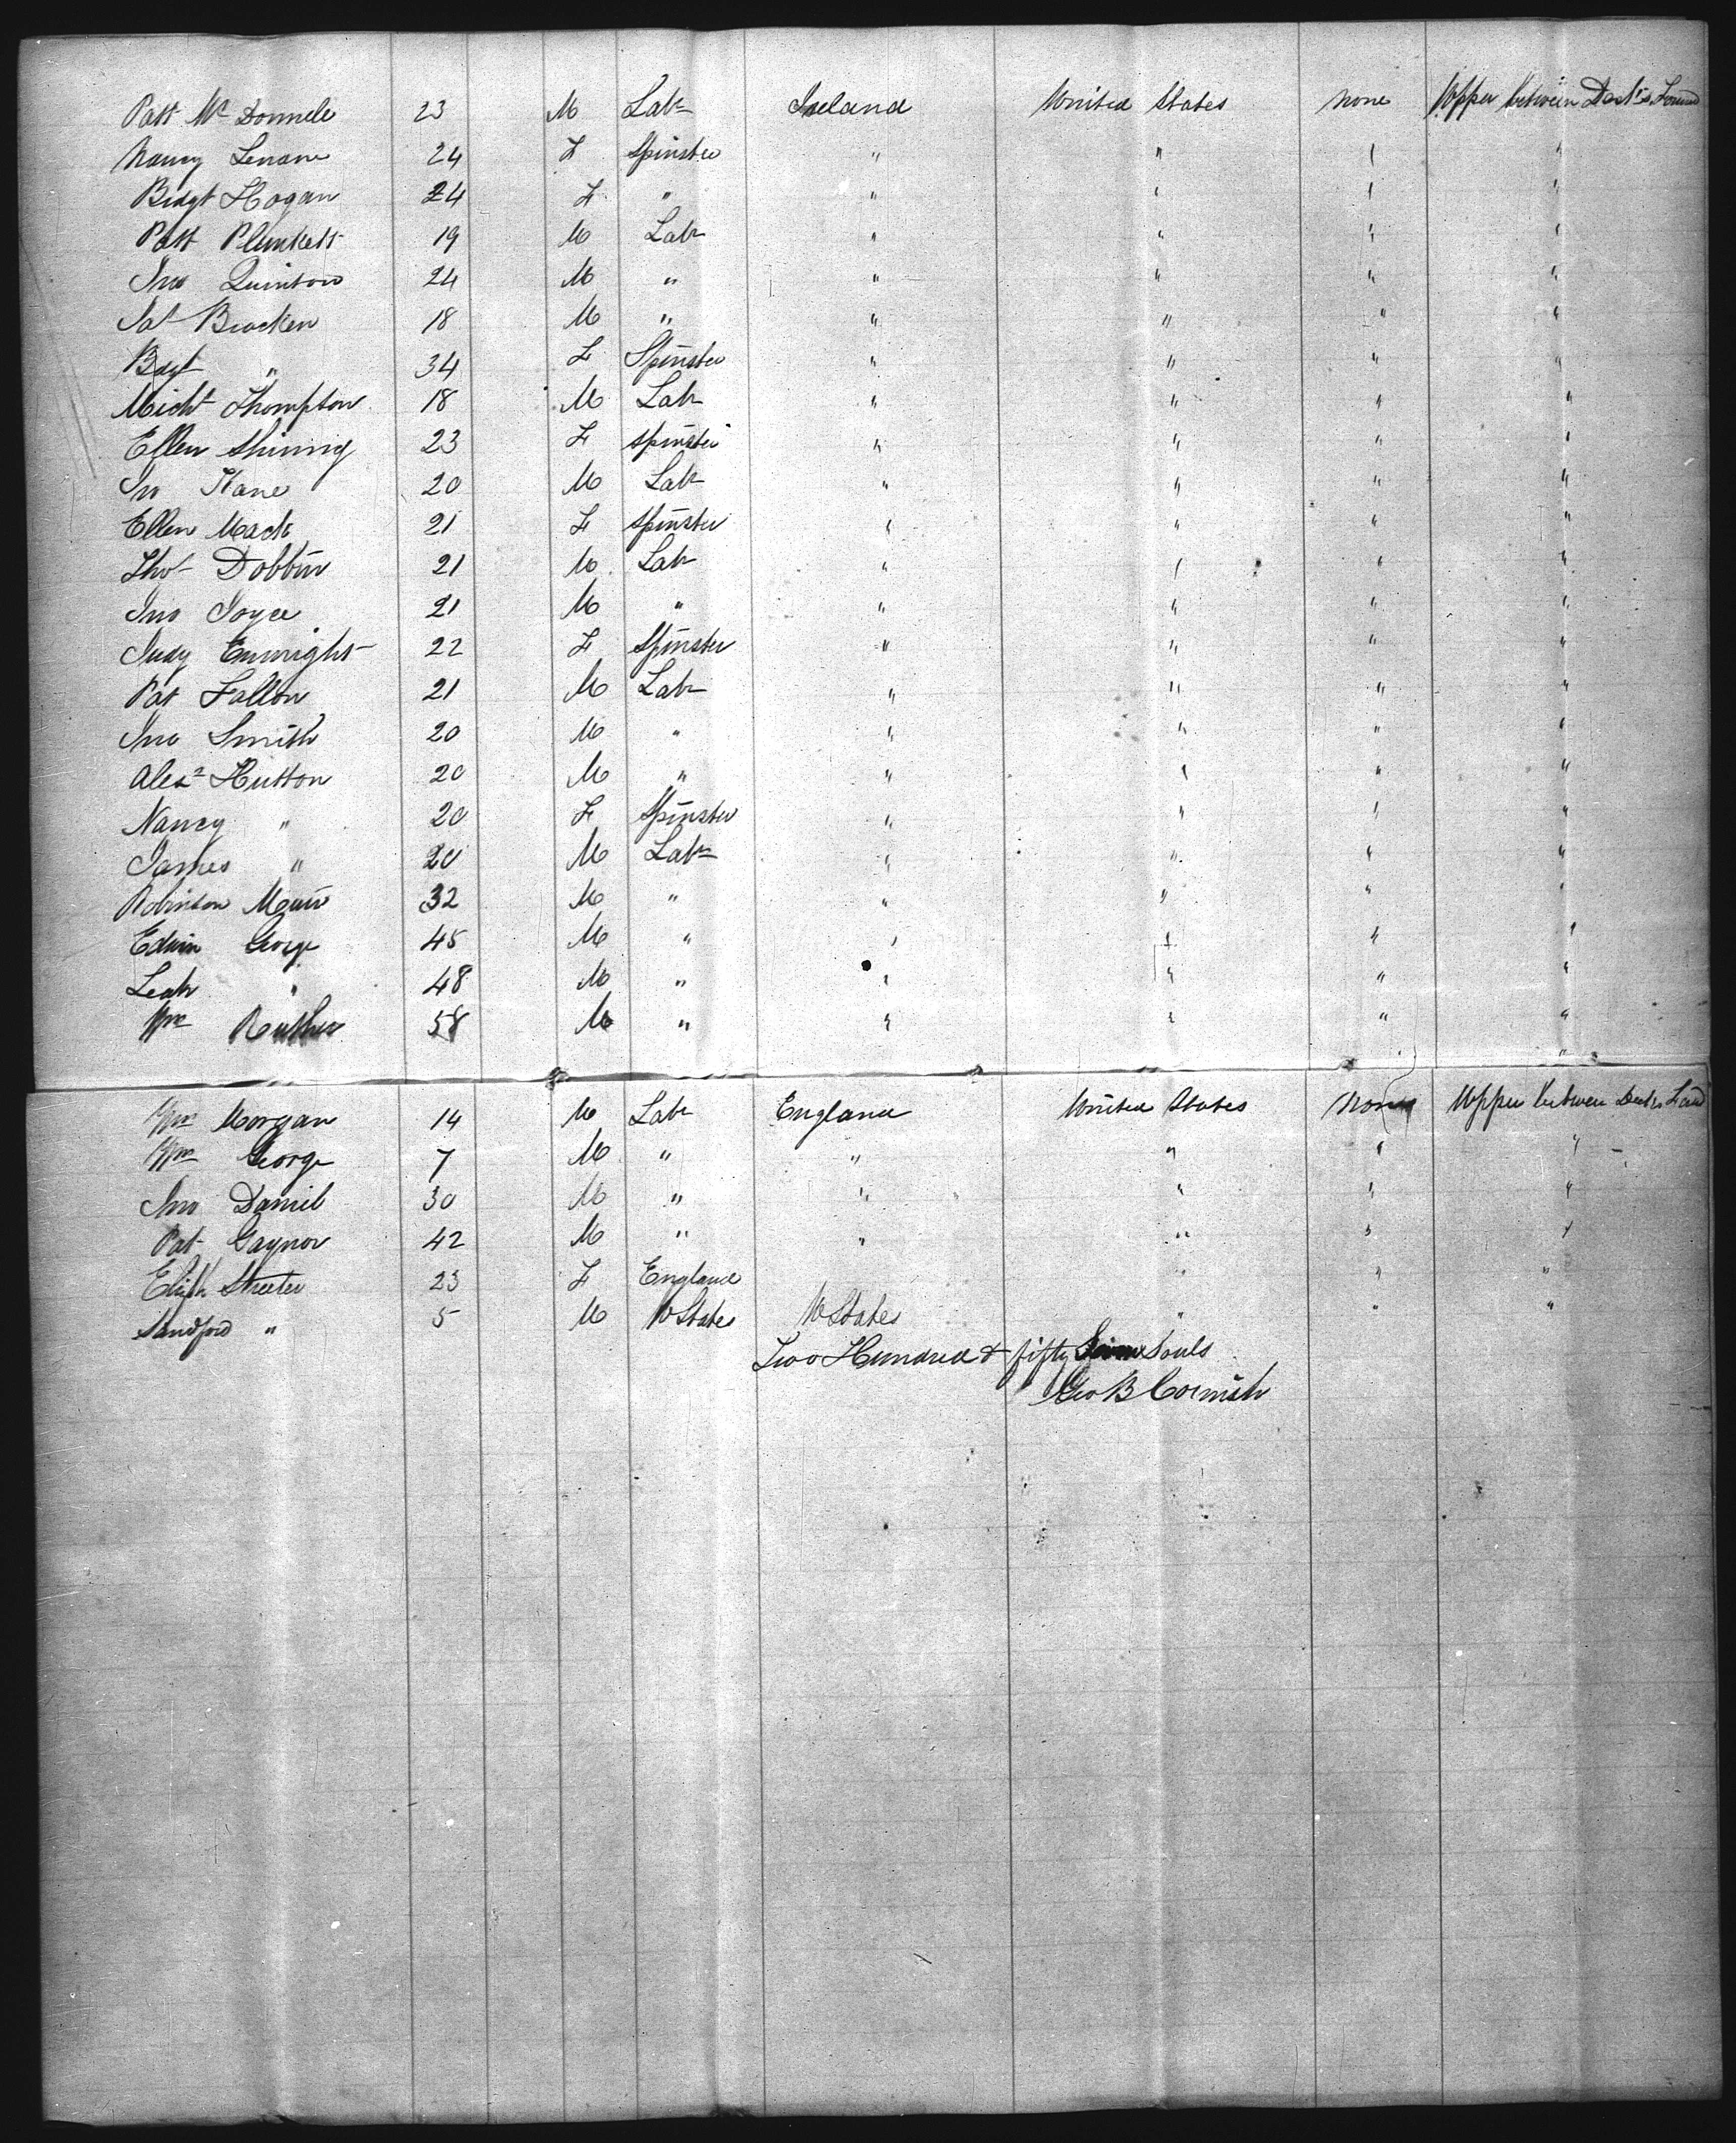 Patt McDonnele 23 M Labr Ireland United States none Upper between Decks Forward
Nancy Lenane 24 F Spinster " " " "
Bridgt Hogan 24 F " " " " "
Patt Plunkett 19 M Labr " " " "
Jno Quinton 24 M " " " " "
Pat Bracken 18 M " " " " "
Bdgt " 34 F Spinster " " " "
Michl Thompson 18 M Labr " " " "
Ellen 23 F Spinster " " " "
Jno Kane 20 M Labr " " " "
Ellen Mack 21 F Spinster " " " "
Thos Dobbin 21 M Labr " " " "
Jno Joyce 21 M " " " " "
Judy Enwright 22 F Spinster " " " "
Pat Fallon 21 M Labr " " " "
Jno Smith 20 M " " " " "
Alexr Hutton 20 M " " " " "
Nancy " 20 F Spinster " " " "
James " 20 M Labr " " " "
Robinson Muir 32 M " " " " "
Edwin George 45 M " " " " "
Leah " 48 M " " " " "
Wm 58 M " " " " "
"
Wm Morgan 14 M Labr England United States None Upper between Decks Fard
Wm George 7 M " " " " "
Jno Daniel 30 M " " " " "
Pat Gaynor 42 M " " " " "
Elizth Streeter 23 F England " " "
Sandford " 5 M U States U States " " "
Two Hundred & fifty Seven Souls
Geo B Cornish